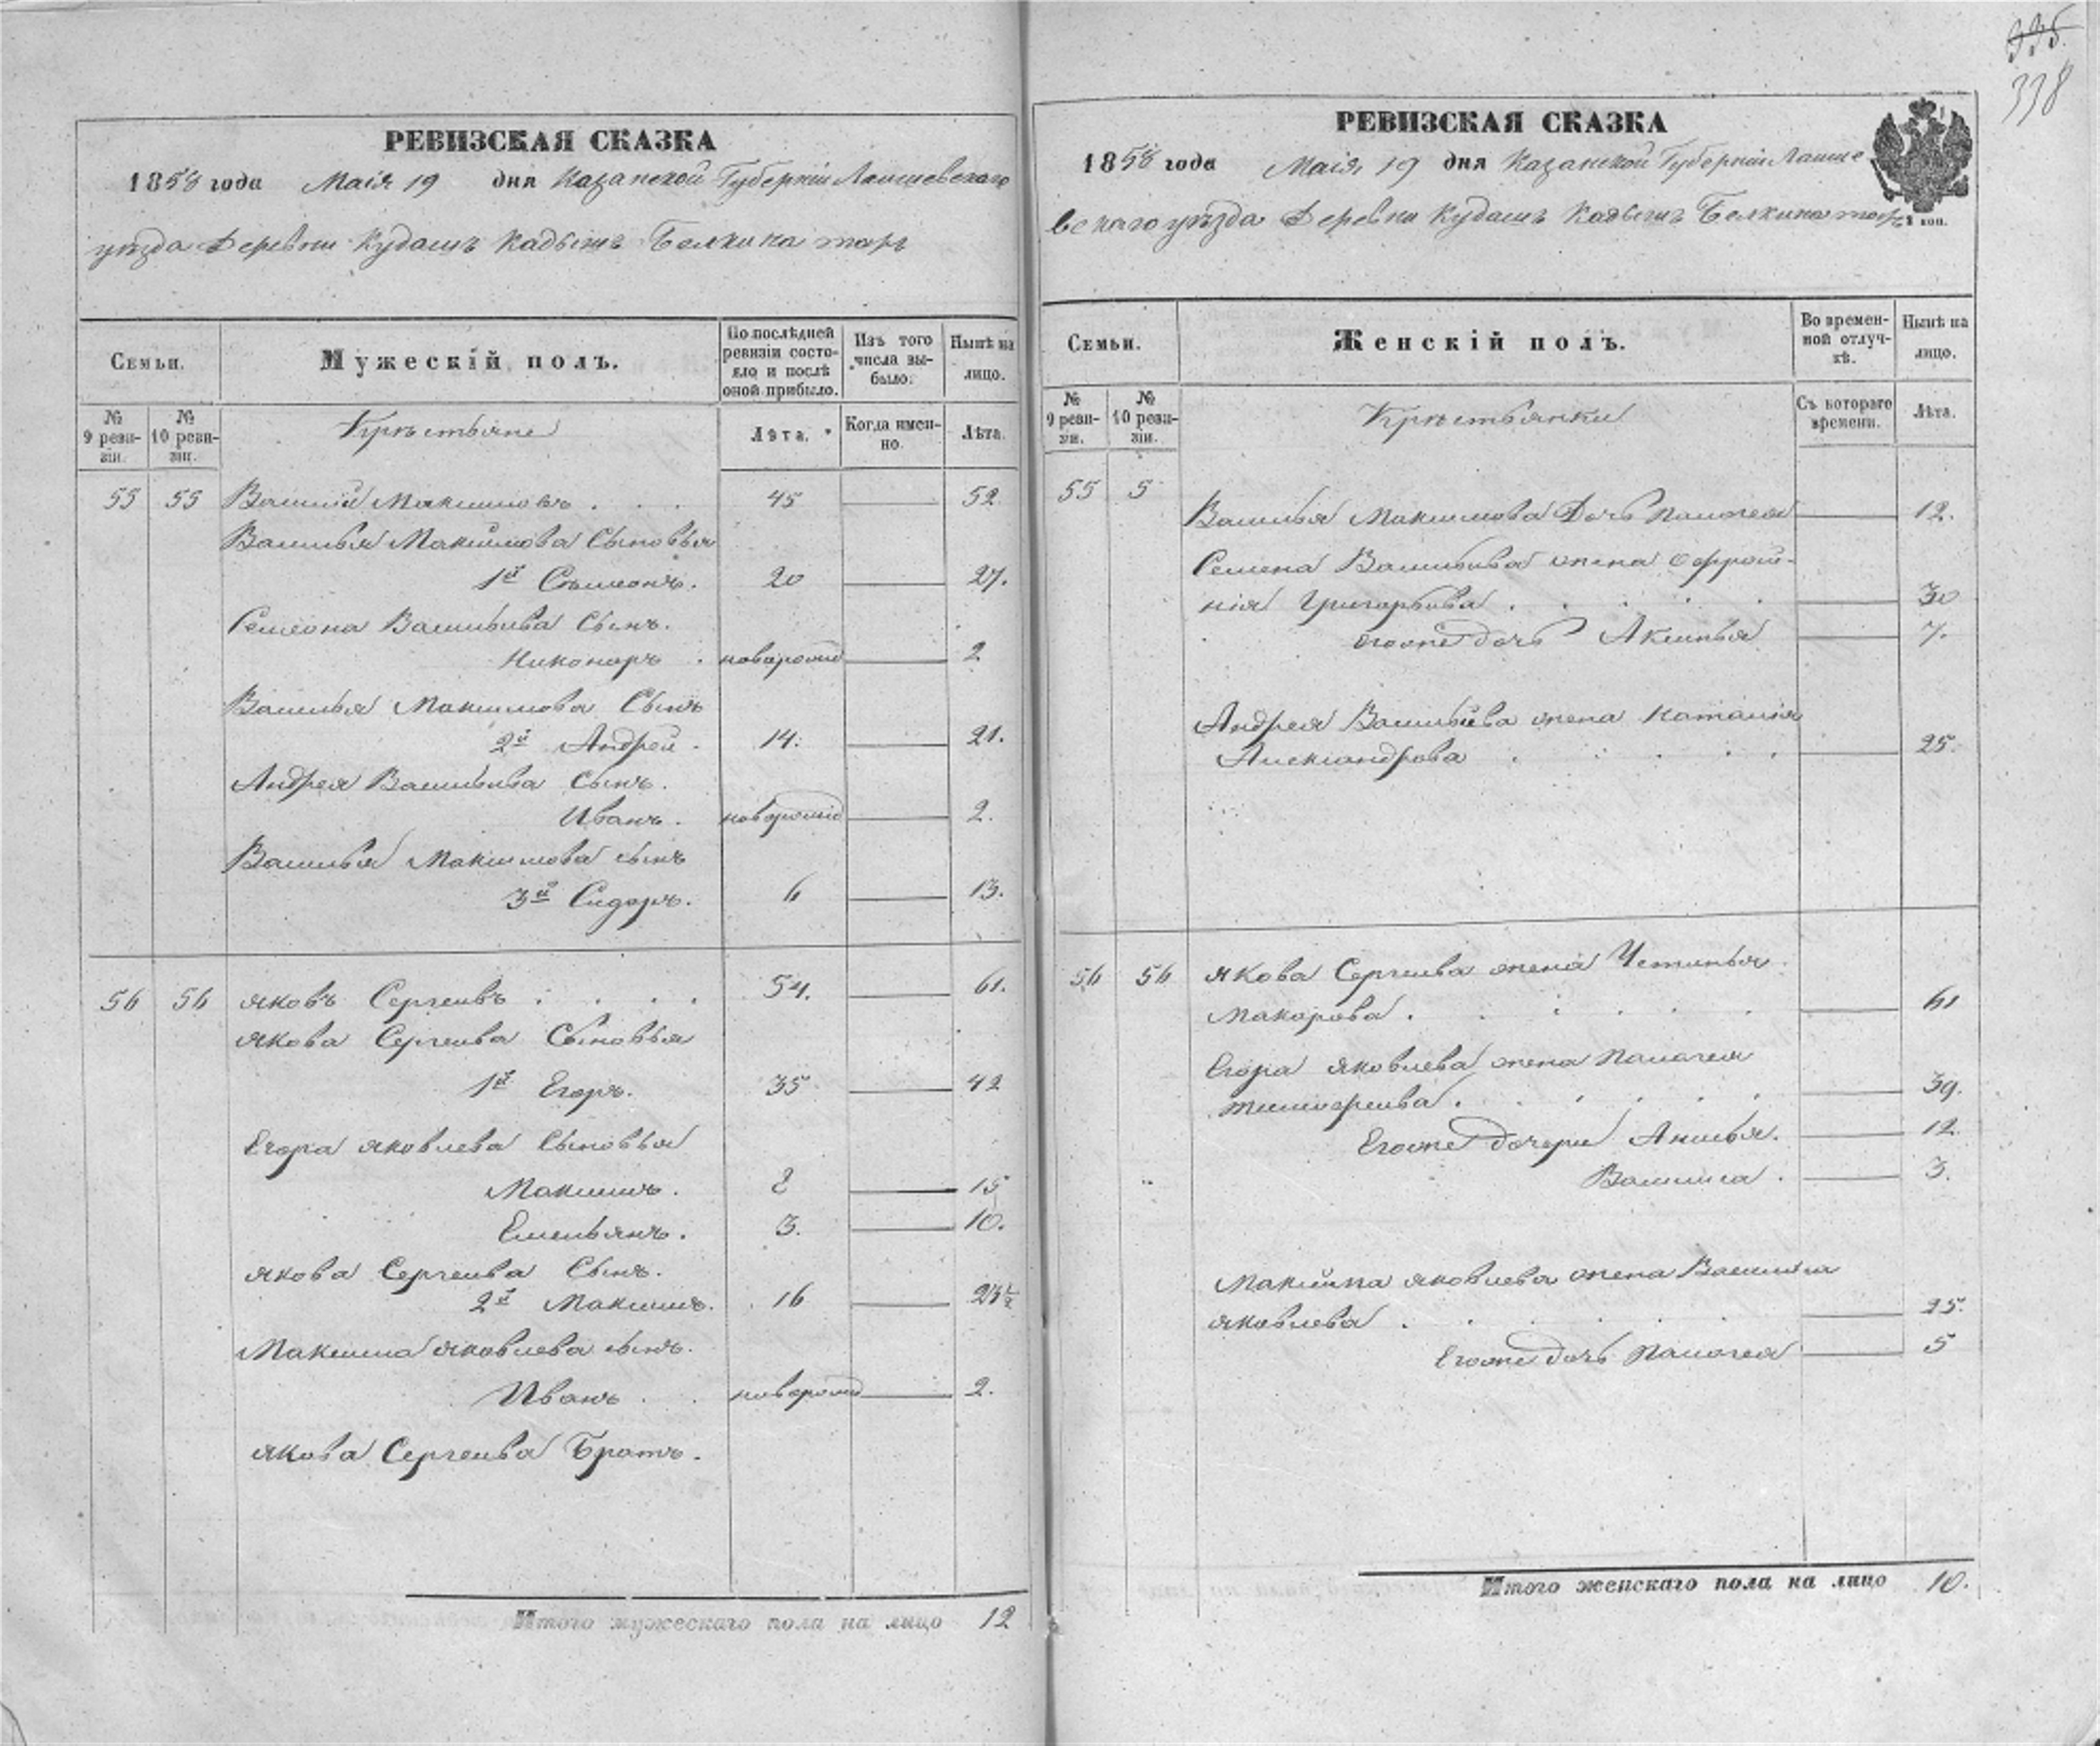 335.
338
РЕВИЗСКАЯ СКАЗКА
1858 года Маія 19 дня Казанской Губерніи Лаишевскаго
уѣзда Деревни Кудашъ Кадышъ Белкина тожъ
Семьи.
Мужескій полъ.
По послѣдней ревизіи состояло и послѣ оной прибыло.
Изъ того числа выбыло.
Нынѣ на лицо.
№ 9 ревизіи.
№ 10 ревизіи.
Крѣстьяне
Лѣта.
Когда именно.
Лѣта.
55 55 Василій Максимовъ . . . 45 52
Василья Максимова Сыновья
1й Семионъ. 20 27.
Семиона Васильева Сынъ.
Никоноръ . новорожд 2
Василья Максимова Сынъ
2й Андрей. 14. 21.
Андрея Васильева Сынъ.
Иванъ. новорожд 2.
Василья Максимова сынъ
3й Сидоръ. 6 13.
56 56 Яковъ Сергеивъ . . . . 54. 61.
Якова Сергеива Сыновья
1й Егоръ. 35 42
Егора Яковлева Сыновья
Максимъ. 8 15
Емельянъ. 3. 10.
Якова Сергеива Сынъ.
2й Максимъ. 16
Максима Яковлева сынъ.
Иванъ . . новорожд 2.
Якова Сергеива Братъ.
Итого мужескаго пола на лицо 12
РЕВИЗСКАЯ СКАЗКА
1858 года Маія 19 дня Казанской Губерніи Лаише
вскаго уѣзда Деревни Кудашъ Кадышъ Белкина тожъ
коп.
Семьи.
Женскій полъ.
Во временной отлучкѣ.
Нынѣ на лицо.
№ 9 ревизіи.
№ 10 ревизіи.
Крѣстьянки
Съ котораго времени.
Лѣта.
55 5 Василья Максимова Дочь Палагея 12.
Семена Васильива жена Ефроси-
нія Григорьива . . . . 30
егоже дочь Аксинья 7.
Андрея Васильива жена Наталия
Александрова . . . . 25.
56 56 Якова Сергеива жена Устинья
Макарова . . . . . 61
Егора Яковлева жена Палагея
Тимофеива . . . . . 39.
Егоже дочери Анисья. 12.
Василиса . 3.
Максима Яковлева жена Василиса
Яковлева . . . . . 25.
Егоже дочь Палагея 5
Итого женскаго пола на лицо 10.